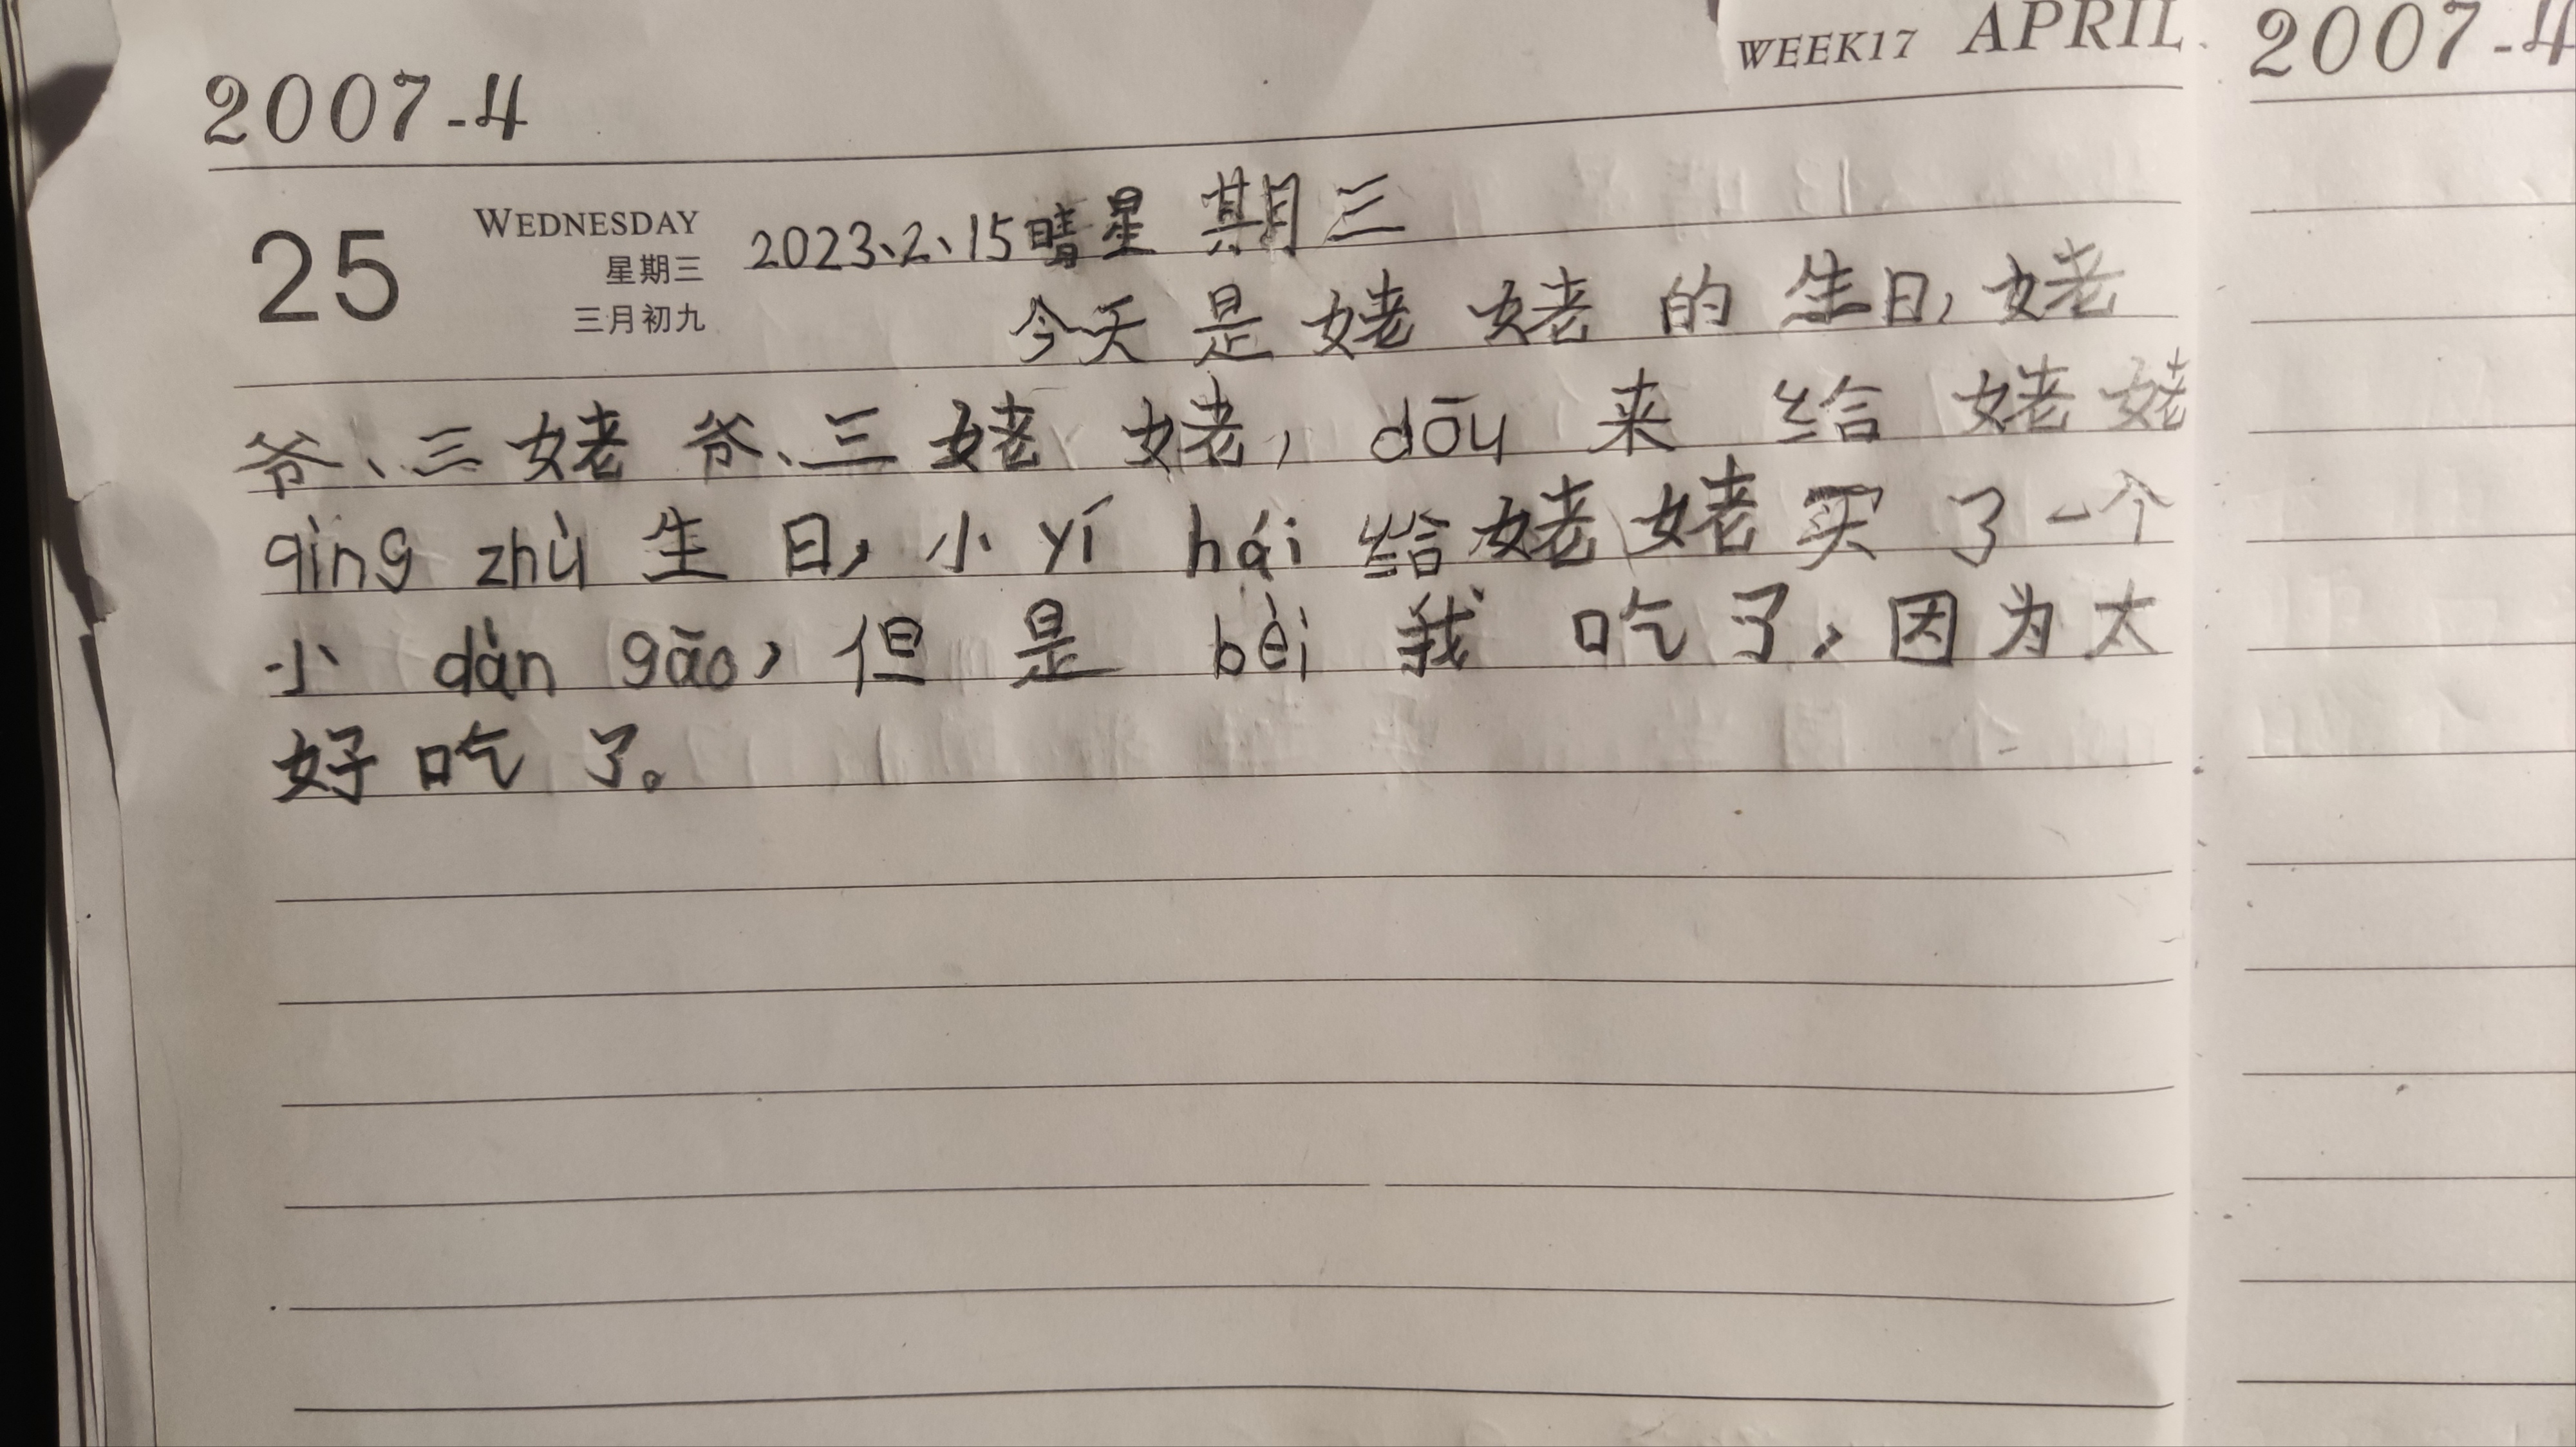 WEEK17 APRIL
2007-4
2007-4
25
WEDNESDAY
星期三
三月初九
2023、2、15晴星期三
今天是姥姥的生日,姥
爷、三姥爷、三姥姥,dōu来给姥姥
qìng zhù生日,小yí hái给姥姥买了一个
小dàn gāo,但是bèi我吃了,因为太
好吃了。